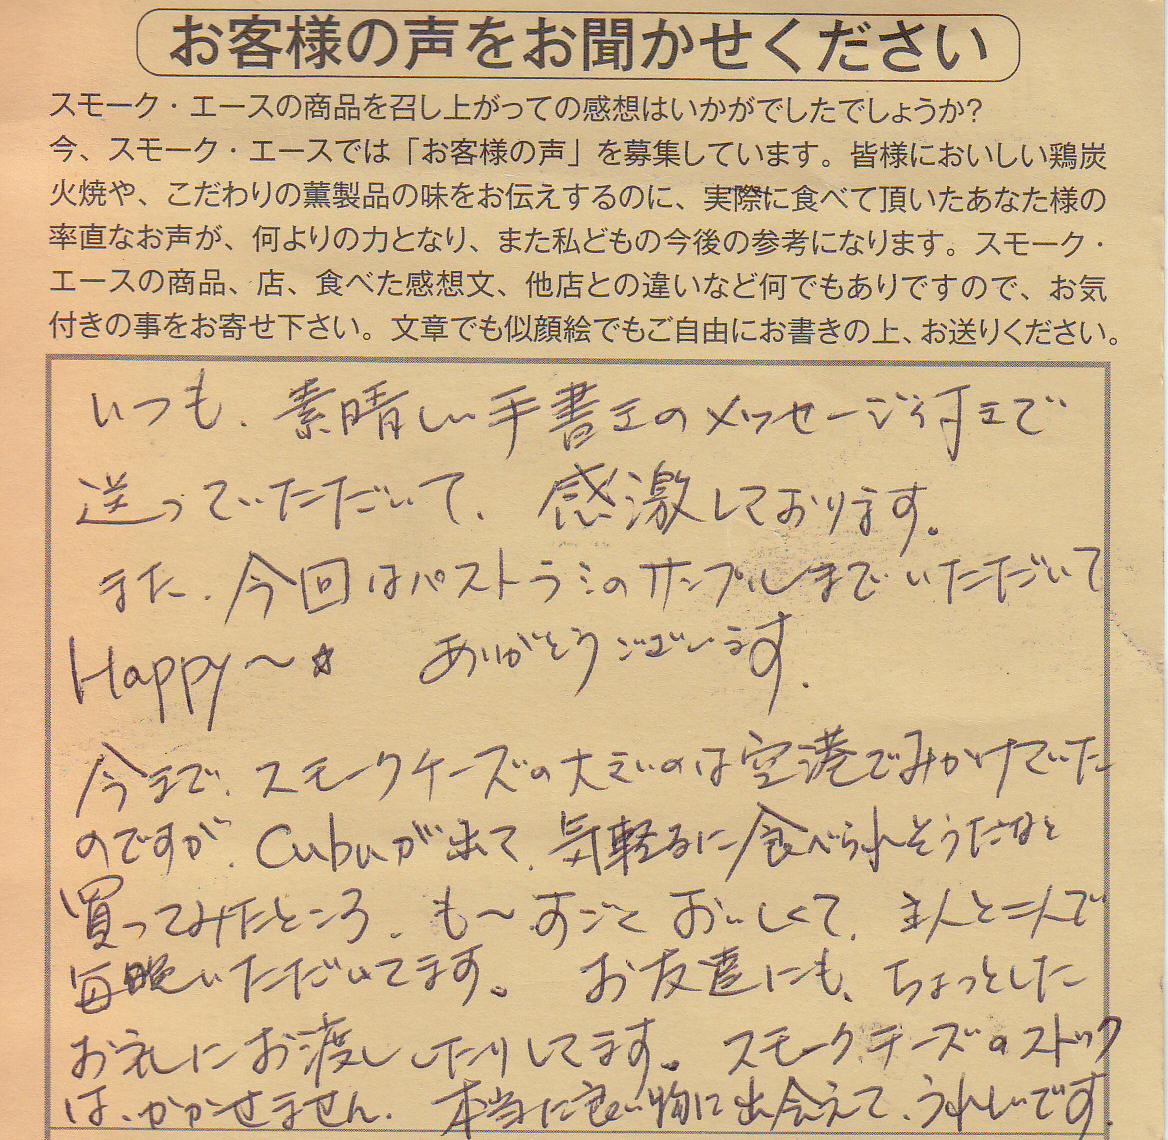 お客様の声をお聞かせください
スモーク・エースの商品を召し上がっての感想はいかがでしたでしょうか?
今、スモーク・エースでは「お客様の声」を募集しています。皆様においしい鶏炭
火焼や、こだわりの薫製品の味をお伝えするのに、実際に食べて頂いたあなた様の
率直なお声が、何よりの力となり、また私どもの今後の参考になります。スモーク・
エースの商品、店、食べた感想文、他店との違いなど何でもありですので、お気
付きの事をお寄せ下さい。文章でも似顔絵でもご自由にお書きの上、お送りください。
いつも、素晴しい手書きのメッセージ付きで
送っていただいて、感激しております。
また、今回はパストラミのサンプルまでいただいて
Happy〜☆ ありがとうございます.
今まで、スモークチーズの大きいのは空港でみかけていた
のですが、Cubuが出て、気軽るに食べられそうだなと
買ってみたところ、も〜すごくおいしくて、主人と二人で
毎晩いただいてます。お友達にも、ちょっとした
お礼にお渡ししたりしてます。スモークチーズのストック
は、かかせません。本当に良い物に出会えて、うれしいです.